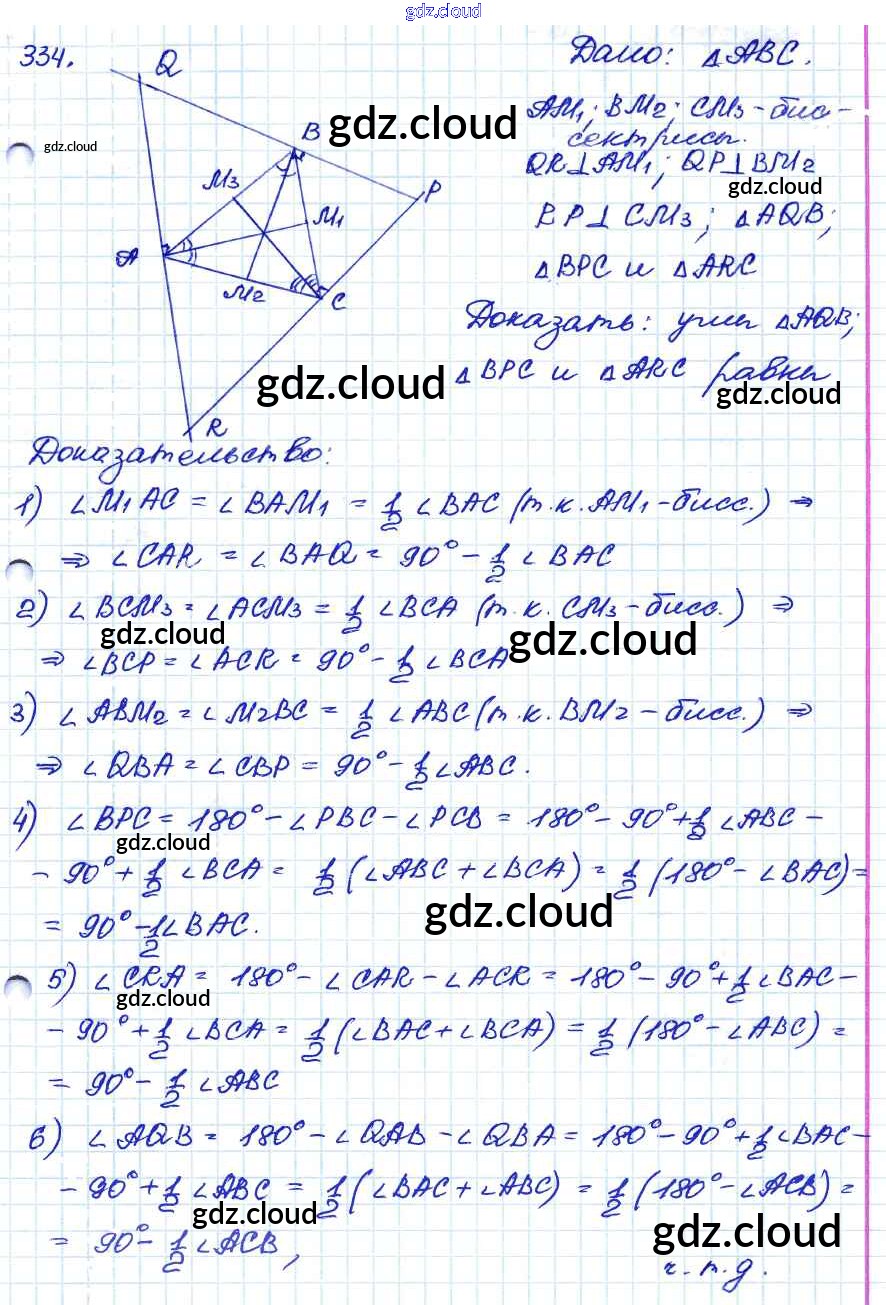 gdz.cloud
334.
Q
B
M3
M1
P
A
M2
C
R
gdz.cloud
gdz.cloud
Дано: △ABC.
AM1; BM2; CM3 - бис-
сектрисы.
QR⊥AM1; QP⊥BM2
gdz.cloud
RP⊥CM3; △AQB;
△BPC и △ARC
Доказать: углы △AQB;
△BPC и △ARC равны
gdz.cloud
gdz.cloud
Доказательство:
1) ∠M1AC = ∠BAM1 = 1/2 ∠BAC (т.к. AM1 - бисс.) ⇒
⇒ ∠CAR = ∠BAQ = 90° - 1/2 ∠BAC
2) ∠BCM3 = ∠ACM3 = 1/2 ∠BCA (т.к. CM3 - бисс.) ⇒
gdz.cloud
gdz.cloud
⇒ ∠BCP = ∠ACR = 90° - 1/2 ∠BCA
3) ∠ABM2 = ∠M2BC = 1/2 ∠ABC (т.к. BM2 - бисс.) ⇒
⇒ ∠QBA = ∠CBP = 90° - 1/2 ∠ABC.
4) ∠BPC = 180° - ∠PBC - ∠PCB = 180° - 90° + 1/2 ∠ABC -
gdz.cloud
- 90° + 1/2 ∠BCA = 1/2 (∠ABC + ∠BCA) = 1/2 (180° - ∠BAC) =
gdz.cloud
= 90° - 1/2 ∠BAC.
5) ∠CRA = 180° - ∠CAR - ∠ACR = 180° - 90° + 1/2 ∠BAC -
gdz.cloud
- 90° + 1/2 ∠BCA = 1/2 (∠BAC + ∠BCA) = 1/2 (180° - ∠ABC) =
= 90° - 1/2 ∠ABC
6) ∠AQB = 180° - ∠QAB - ∠QBA = 180° - 90° + 1/2 ∠BAC -
- 90° + 1/2 ∠ABC = 1/2 (∠BAC + ∠ABC) = 1/2 (180° - ∠ACB) =
gdz.cloud
gdz.cloud
= 90° - 1/2 ∠ACB,
ч.т.д.